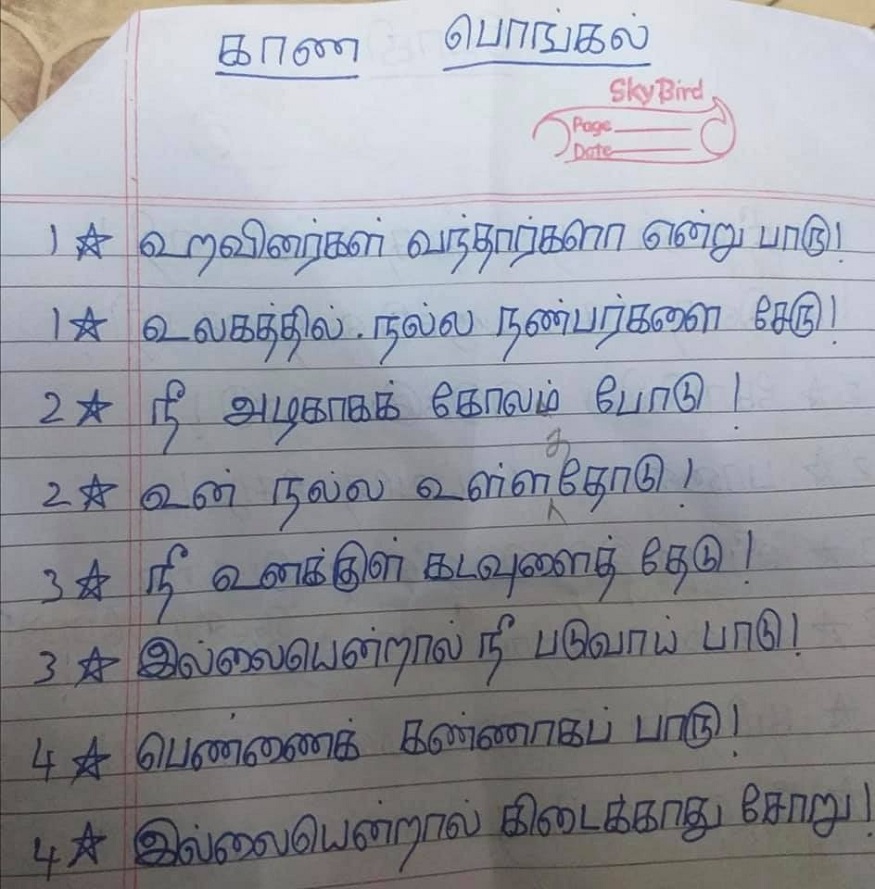 காண பொங்கல்
SkyBird
Page
Date
1 ☆ உறவினர்கள் வந்தார்களா என்று பாரு!
1 ☆ உலகத்தில். நல்ல நண்பர்களை சேரு!
2 ☆ நீ அழகாகக் கோலம் போடு!
2 ☆ உன் நல்ல உள்ளத்தோடு!
3 ☆ நீ உனக்குள் கடவுளைத் தேடு!
3 ☆ இல்லையென்றால் நீ படுவாய் பாடு!
4 ☆ பெண்ணைக் கண்ணாகப் பாரு!
4 ☆ இல்லையென்றால் கிடைக்காது சோறு!